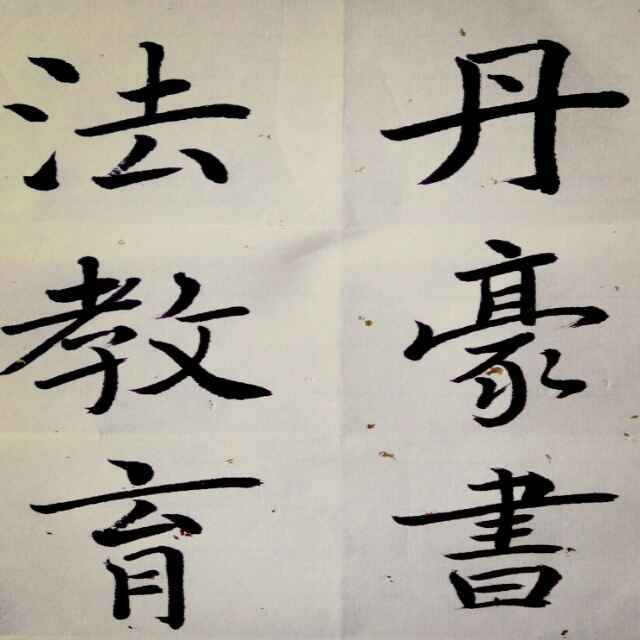 丹豪書
法教育